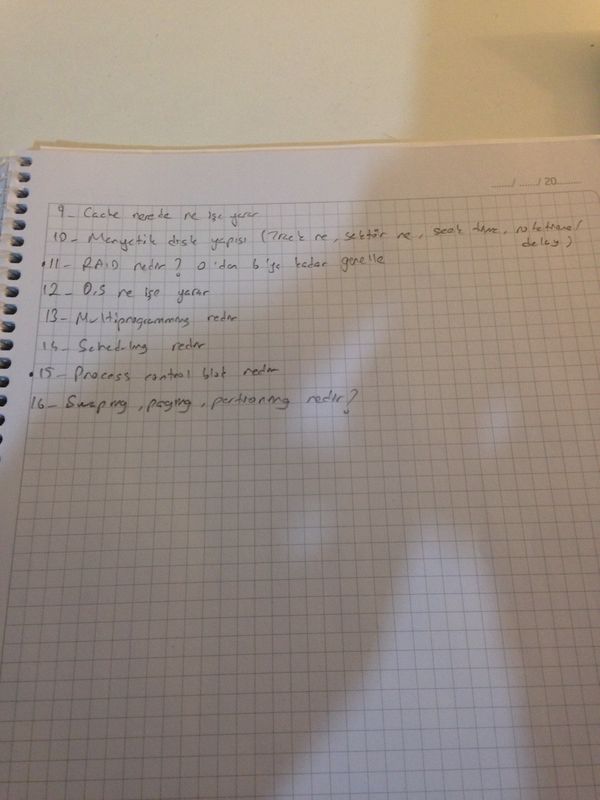 ....../....../20.........
9- Cache nerede ne işe yarar
10- Manyetik disk yapısı (Track ne, sektör ne, seek time, rotational
delay)
11- RAID nedir? 0'dan 6'ya kadar
12- O.S ne işe yarar
13- Multiprogramming nedir
14- Scheduling nedir
15- Process control blok nedir
16- Swaping, paging, partioning nedir?